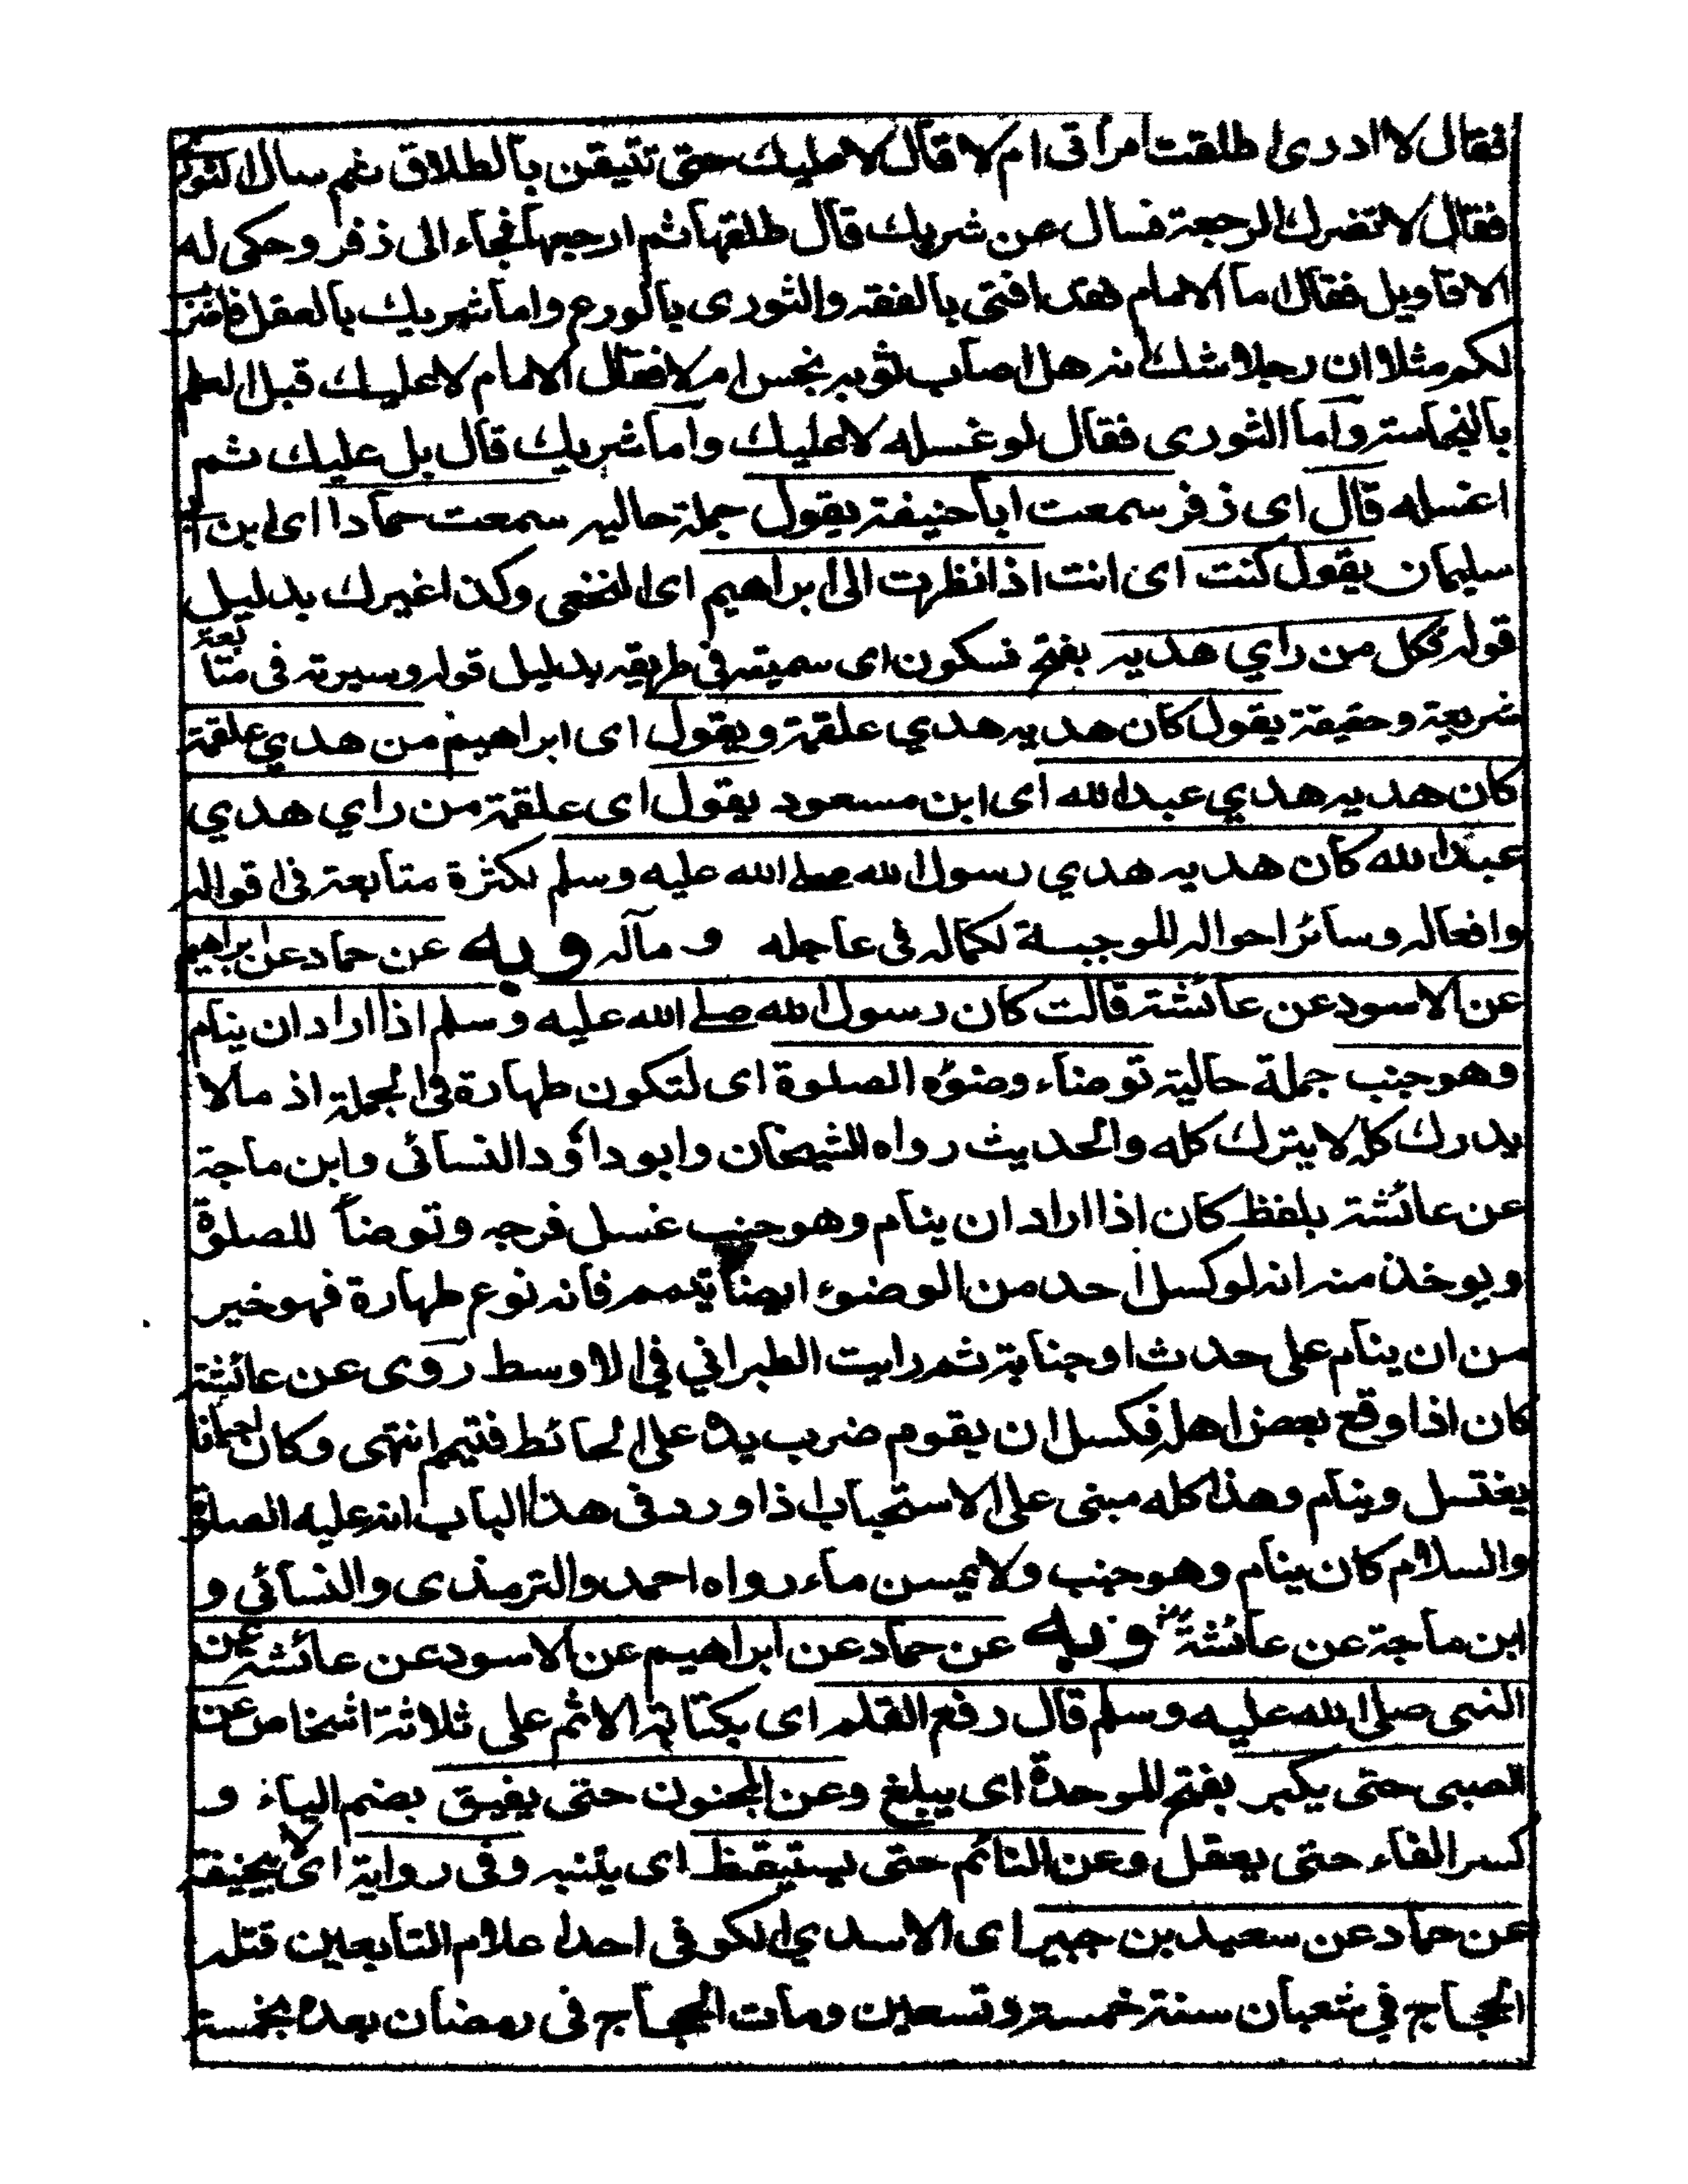 فقال لا ادری اطلقت امراتی ام لا قال لا علیك حتی تتیقن بالطلاق ثم سال الثوری
فقال لا تضرك الرجعة فسال عن شریك قال طلقها ثم ارجعها فجاء الی زفر وحکی له
الاقاویل فقال اما الامام فقد افتی بالفقه والثوری بالورع واما شریك بالعقل فاضرب
لکم مثلا ان رجلا شك انه هل اصاب ثوبه نجس ام لا فقال الامام لا علیك قبل العلم
بالنجاسة واما الثوری فقال لو غسله لا علیك واما شریك قال بل علیك ثم
اغسله قال ای زفر سمعت ابا حنیفة یقول جملة حالیه سمعت حمادا ای ابن ابی
سلیمان یقول کنت ای انت اذا نظرت الی ابراهیم ای النخعی وکذا غیرك بدلیل
قوله فکل من رای هدیه بفتح فسکون ای سمیته فی طریقه بدلیل قوله وسیرته فی متابعة
شریعة وحقیقة یقول کان هدیه هدی علقمة ویقول ای ابراهیم من هدی علقمة
کان هدیه هدی عبد الله ای ابن مسعود یقول ای علقمة من رای هدی
عبد الله کان هدیه هدی رسول الله صلے الله علیه وسلم لکثرة متابعته فی اقواله
وافعاله وسائر احواله الموجبة لکماله فی عاجله و مآله وبه عن حماد عن ابراهیم
عن الاسود عن عائشة قالت کان رسول الله صلے الله علیه وسلم اذا اراد ان ینام
وهو جنب جملة حالیة توضاء وضوءه الصلوة ای لتکون طهارة فی الجملة اذ مالا
یدرك کله لا یترك کله والحدیث رواه الشیخان وابو داؤد النسائی وابن ماجة
عن عائشة بلفظ کان اذا اراد ان ینام وهو جنب غسل فرجه وتوضأ للصلوة
ویوخذ منه انه لو کسل احد من الوضوء ایضا تیمم فانه نوع طهارة فهو خیر
من ان ینام علی حدث او جنابة ثم رایت الطبرانی فی الاوسط روی عن عائشة
کان اذا وقع بعض اهله فکسل ان یقوم ضرب یده علی الحائط فتیمم انتهی وکان احیانا
یغتسل وینام وهذا کله مبنی علی الاستحباب اذا ورد فی هذا الباب انه علیه الصلوة
والسلام کان ینام وهو جنب ولا یمسن ماء رواه احمد والترمذی والنسائی و
ابن ماجة عن عائشة وبه عن حماد عن ابراهیم عن الاسود عن عائشة عن
النبی صلی الله علیه وسلم قال رفع القلم ای بکتابة الاثم علی ثلاثة اشخاص عن
الصبی حتی یکبر بفتح الموحدة ای یبلغ وعن المجنون حتی یفیق بضم الیاء و
کسر الفاء حتی یعقل وعن النائم حتی یستیقظ ای یتنبه وفی روایة لابی حنیفة
عن حماد عن سعید بن جبیر ای الاسدی الکوفی احد اعلام التابعین قتله
الحجاج فی شعبان سنة خمسة وتسعین ومات الحجاج فی رمضان بعده بخمسة